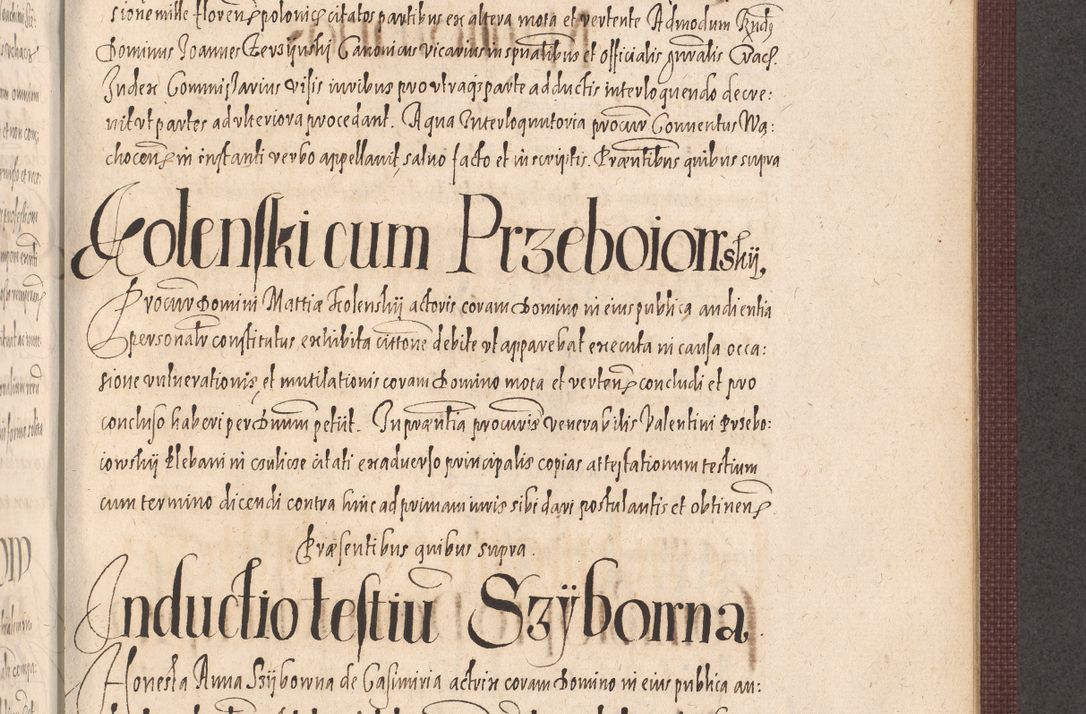 sione mille florenɇ polonicɇ citatos partibus ex altera mota et vertente Admodum Rndꝰ
Dominus Joannes Gersÿnski Canonicus vicarius in spnalibus et officialis gnralis Crac.
Judex Commissarius visis iuribus pro vtraqꝫ parte adductis interloquendo decre:
uit vt partes ad vlteriora procedant. A qua Interloquutoria procur Conuentus Wa:
chocenɇ in instanti verbo appellauit saluo facto et in scriptis. Præntibus quibus supra
Kolenski cum Przeboiowskij,
Procur Domini Mattiæ Kolenskij actoris coram Domino in eius publica audientia
personalr constitutus exhibita cittone debite vt apparebat executa in causa occa:
sione vulnerationis et mutilationis coram Domino mota et vertenɇ concludi et pro
concluso haberi per Dnum petiit. In præntia procuris venerabilis Valentini Przebo:
iowskij Plebani in csulicæ citati ex aduerso principalis copias attestationum testium
cum termino dicendi contra hinc ad primam iuris sibi dari postulantis et obtinenɇ
Præsentibus quibus supra.
Inductio testiū Szÿbowna
Honesta Anna Szÿbowna de Casimiria actrix coram Domino in eius publica au: